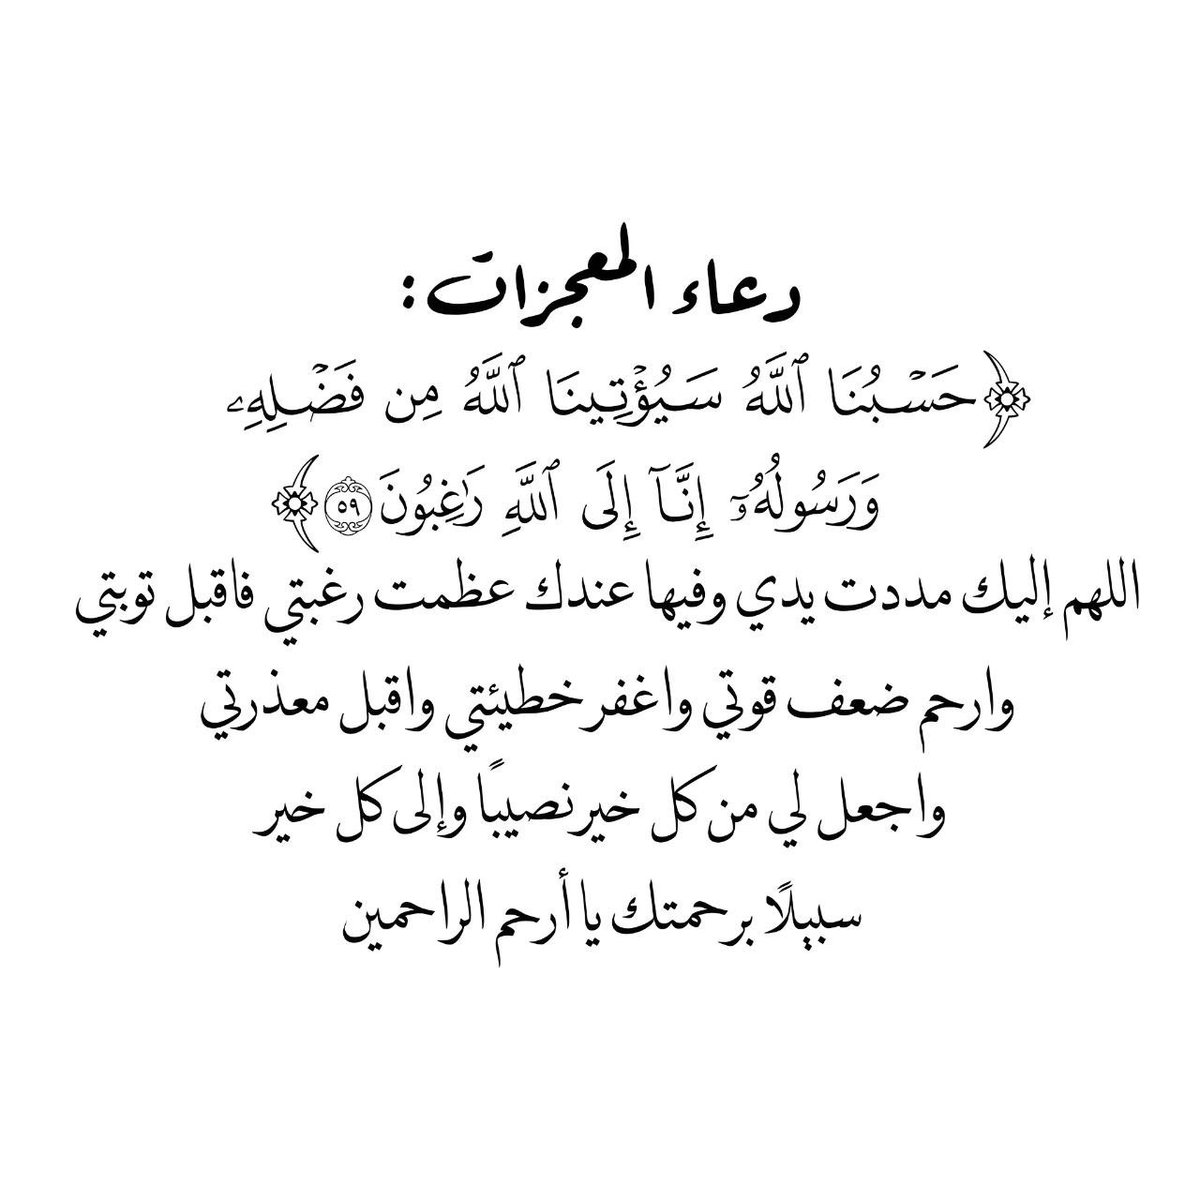 دعاء المعجزات:
﴿حَسۡبُنَا ٱللَّهُ سَيُؤۡتِينَا ٱللَّهُ مِن فَضۡلِهِۦ
وَرَسُولُهُۥٓ إِنَّآ إِلَى ٱللَّهِ رَٰغِبُونَ ٥٩﴾
اللهم إليك مددت يدي وفيها عندك عظمت رغبتي فاقبل توبتي
وارحم ضعف قوتي واغفر خطيئتي واقبل معذرتي
واجعل لي من كل خير نصيبًا وإلى كل خير
سبيلًا برحمتك يا أرحم الراحمين